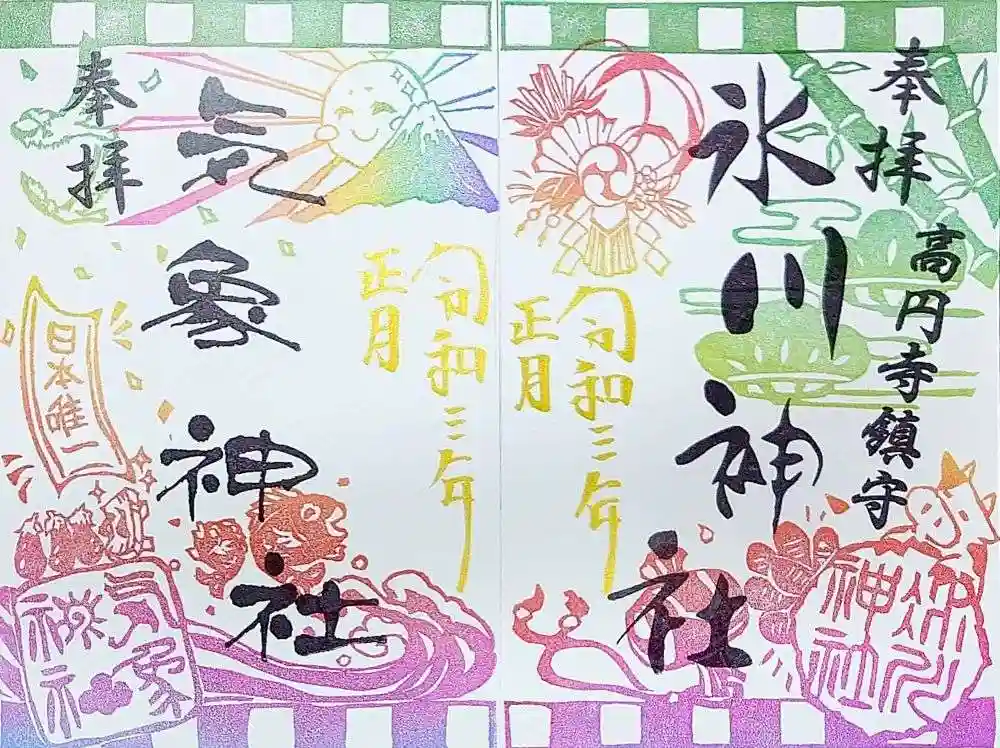 高円寺鎮守
奉拝
氷川神社
令和三年
正月
氷川神社
令和三年
正月
気象神社
奉拝
日本唯一
気象神社